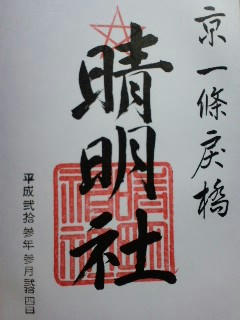 京一條戻橋
晴明社
平成弐拾参年参月弐拾四日